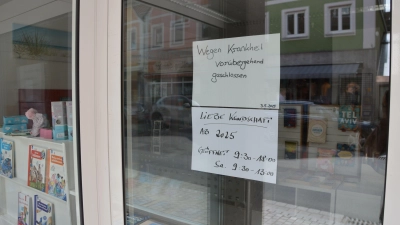 Wegen Krankheit
vorübergehend
geschlossen
LIEBE KUNDSCHAFT!
AB 2025
GEÖFFNET 9:30-18:00
Sa. 9:30-13:00
TEL
AVIV